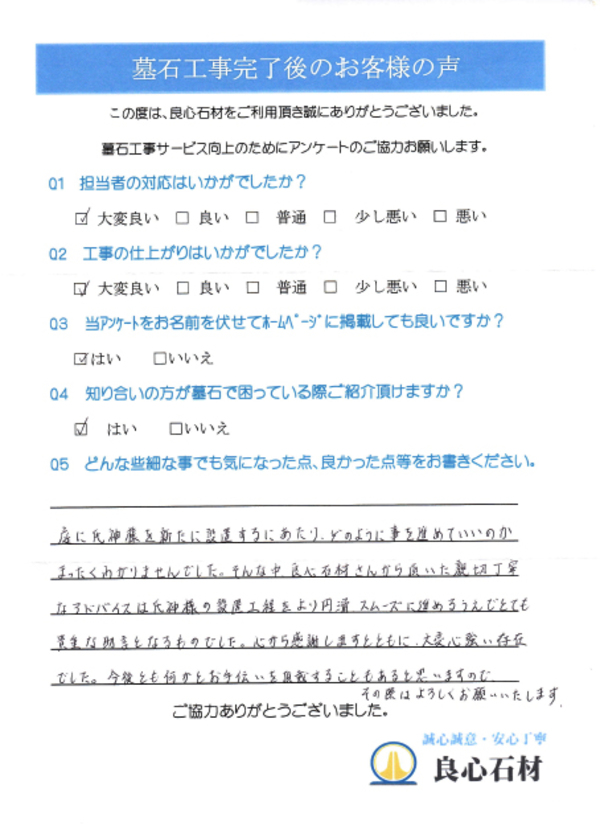 墓石工事完了後のお客様の声
この度は、良心石材をご利用頂き誠にありがとうございました。
墓石工事サービス向上のためにアンケートのご協力お願いします。
Q1 担当者の対応はいかがでしたか？
☑ 大変良い □ 良い □ 普通 □ 少し悪い □ 悪い
Q2 工事の仕上がりはいかがでしたか？
☑ 大変良い □ 良い □ 普通 □ 少し悪い □ 悪い
Q3 当ｱﾝｹｰﾄをお名前を伏せてﾎｰﾑﾍﾟｰｼﾞに掲載しても良いですか？
☑はい □いいえ
Q4 知り合いの方が墓石で困っている際ご紹介頂けますか？
☑ はい □いいえ
Q5 どんな些細な事でも気になった点、良かった点等をお書きください。
庭に氏神様を新たに設置するにあたり、どのように事を進めていいのか
まったくわかりませんでした。そんな中、良心石材さんから頂いた親切丁寧
なアドバイスは氏神様の設置工程をより円滑、スムーズに進めるうえでとても
貴重な助言となるものでした。心から感謝しますとともに、大変心強い存在
でした。今後とも何かとお手伝いを することもあると思いますので、
その際はよろしくお願いいたします。
ご協力ありがとうございました。
誠心誠意・安心丁寧
良心石材